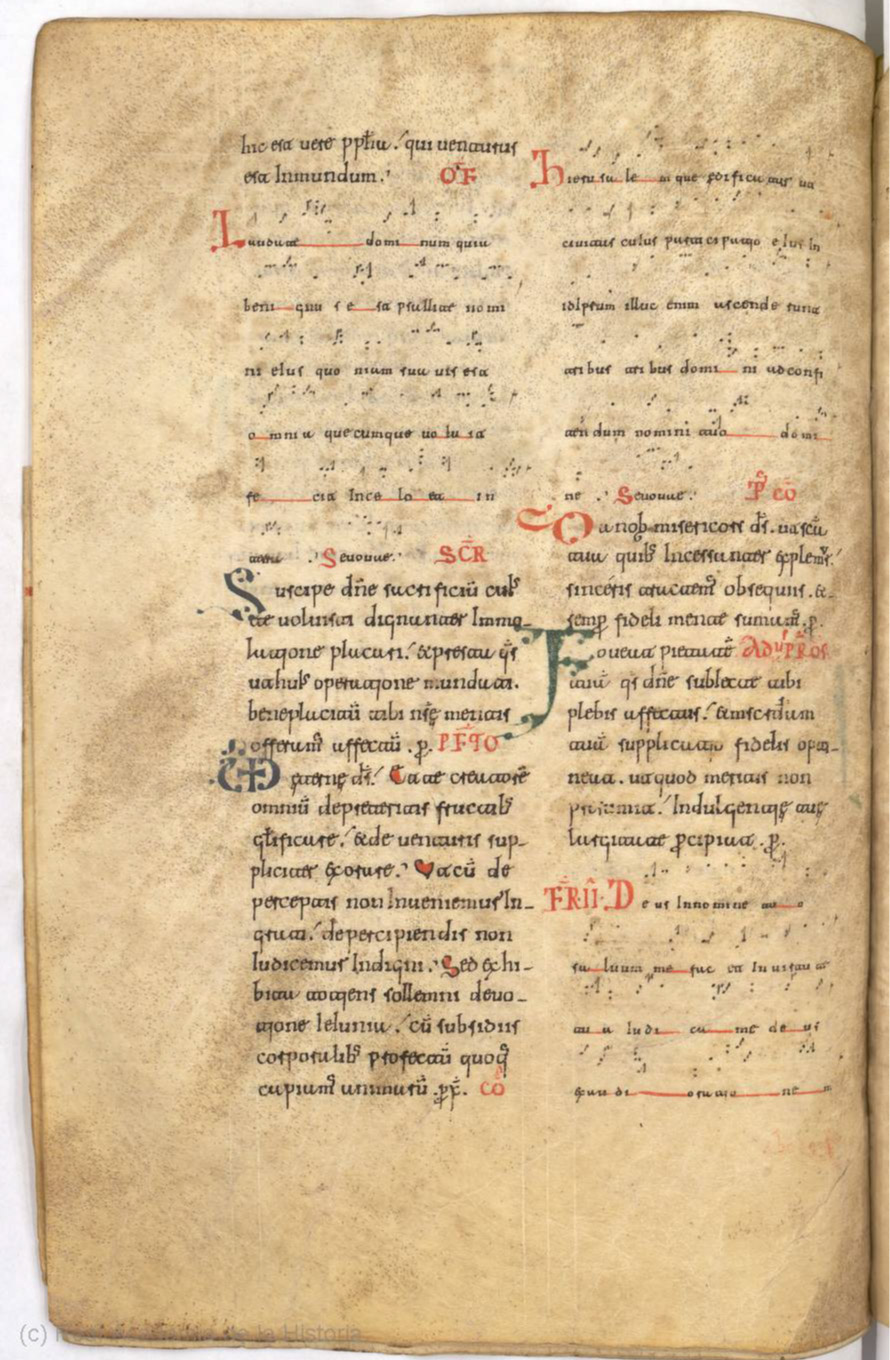 hic est vere ppħa. qui venturus
est Inmundum. OF̄
Laudate dominum quia
benignus est psallite nomi
ni eius quoniam suavis est
omnia quecumque voluit
fecit In celo et in
terra. Seuouae. SC̄R
Suscipe dn̄e sacrificiū cuiꝰ
te voluisti dignanter Immo-
latione placari. & presta q̄s
ut ahuiꝰ operatione mundati.
beneplacitū tibi nr̄ę mentis
offeramꝰ affectū. p̄. P̄F̄TO
VD ęterne ds̄. Et te creatorē
omniū depreteritis fructibꝰ
gl̄ificare. & de venturis sup-
pliciter exorare. Vt cū de
perceptis non Inveniemur In-
grati. de percipiendis non
Iudicemur Indigni. Sed exhi-
bita totiens sollemni devo-
tione Ieiunia. cū subsidiis
corporalibꝰ profectū quoq̄
capiamꝰ animarū. p̄x̄. CŌ
Hierusalem que edificatur ut
civitas cuius participatio eius In
idipsum illuc enim ascenderunt
tribus tribus domini ad confi
tendum nomini tuo domi
ne. Seuouae. P̄ CŌ
Da nob̄ misericors ds̄. ut scā
tua quibꝰ Incessanter explemꝰ.
sinceris tractemꝰ obsequiis. &
semp̄ fideli mente sumamꝰ. p̄.
Tua pietate AD Vp̄R̄OS
tuū qs dn̄e sublevet tibi
plebis affectus. & misc̄diam
tuā supplicatio fidelis opti-
neat. ut quod meritis non
Indulgentię tuę
largitate p̄cipiat. p̄.
F̄RIĪ. Deus In nomine tuo
salvum me fac et In virtute
tua Iudica me deus
exaudi orationem